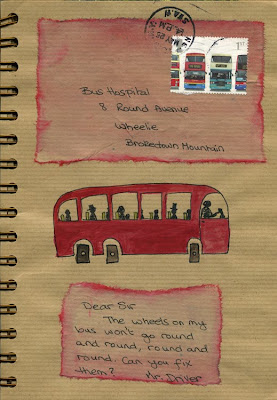 1st
Bus Hospital
8 Round Avenue
Wheelie
Brokedown Mountain
Dear Sir
The wheels on my
bus won't go round
and round, round and
round. Can you fix
them?
Mr. Driver